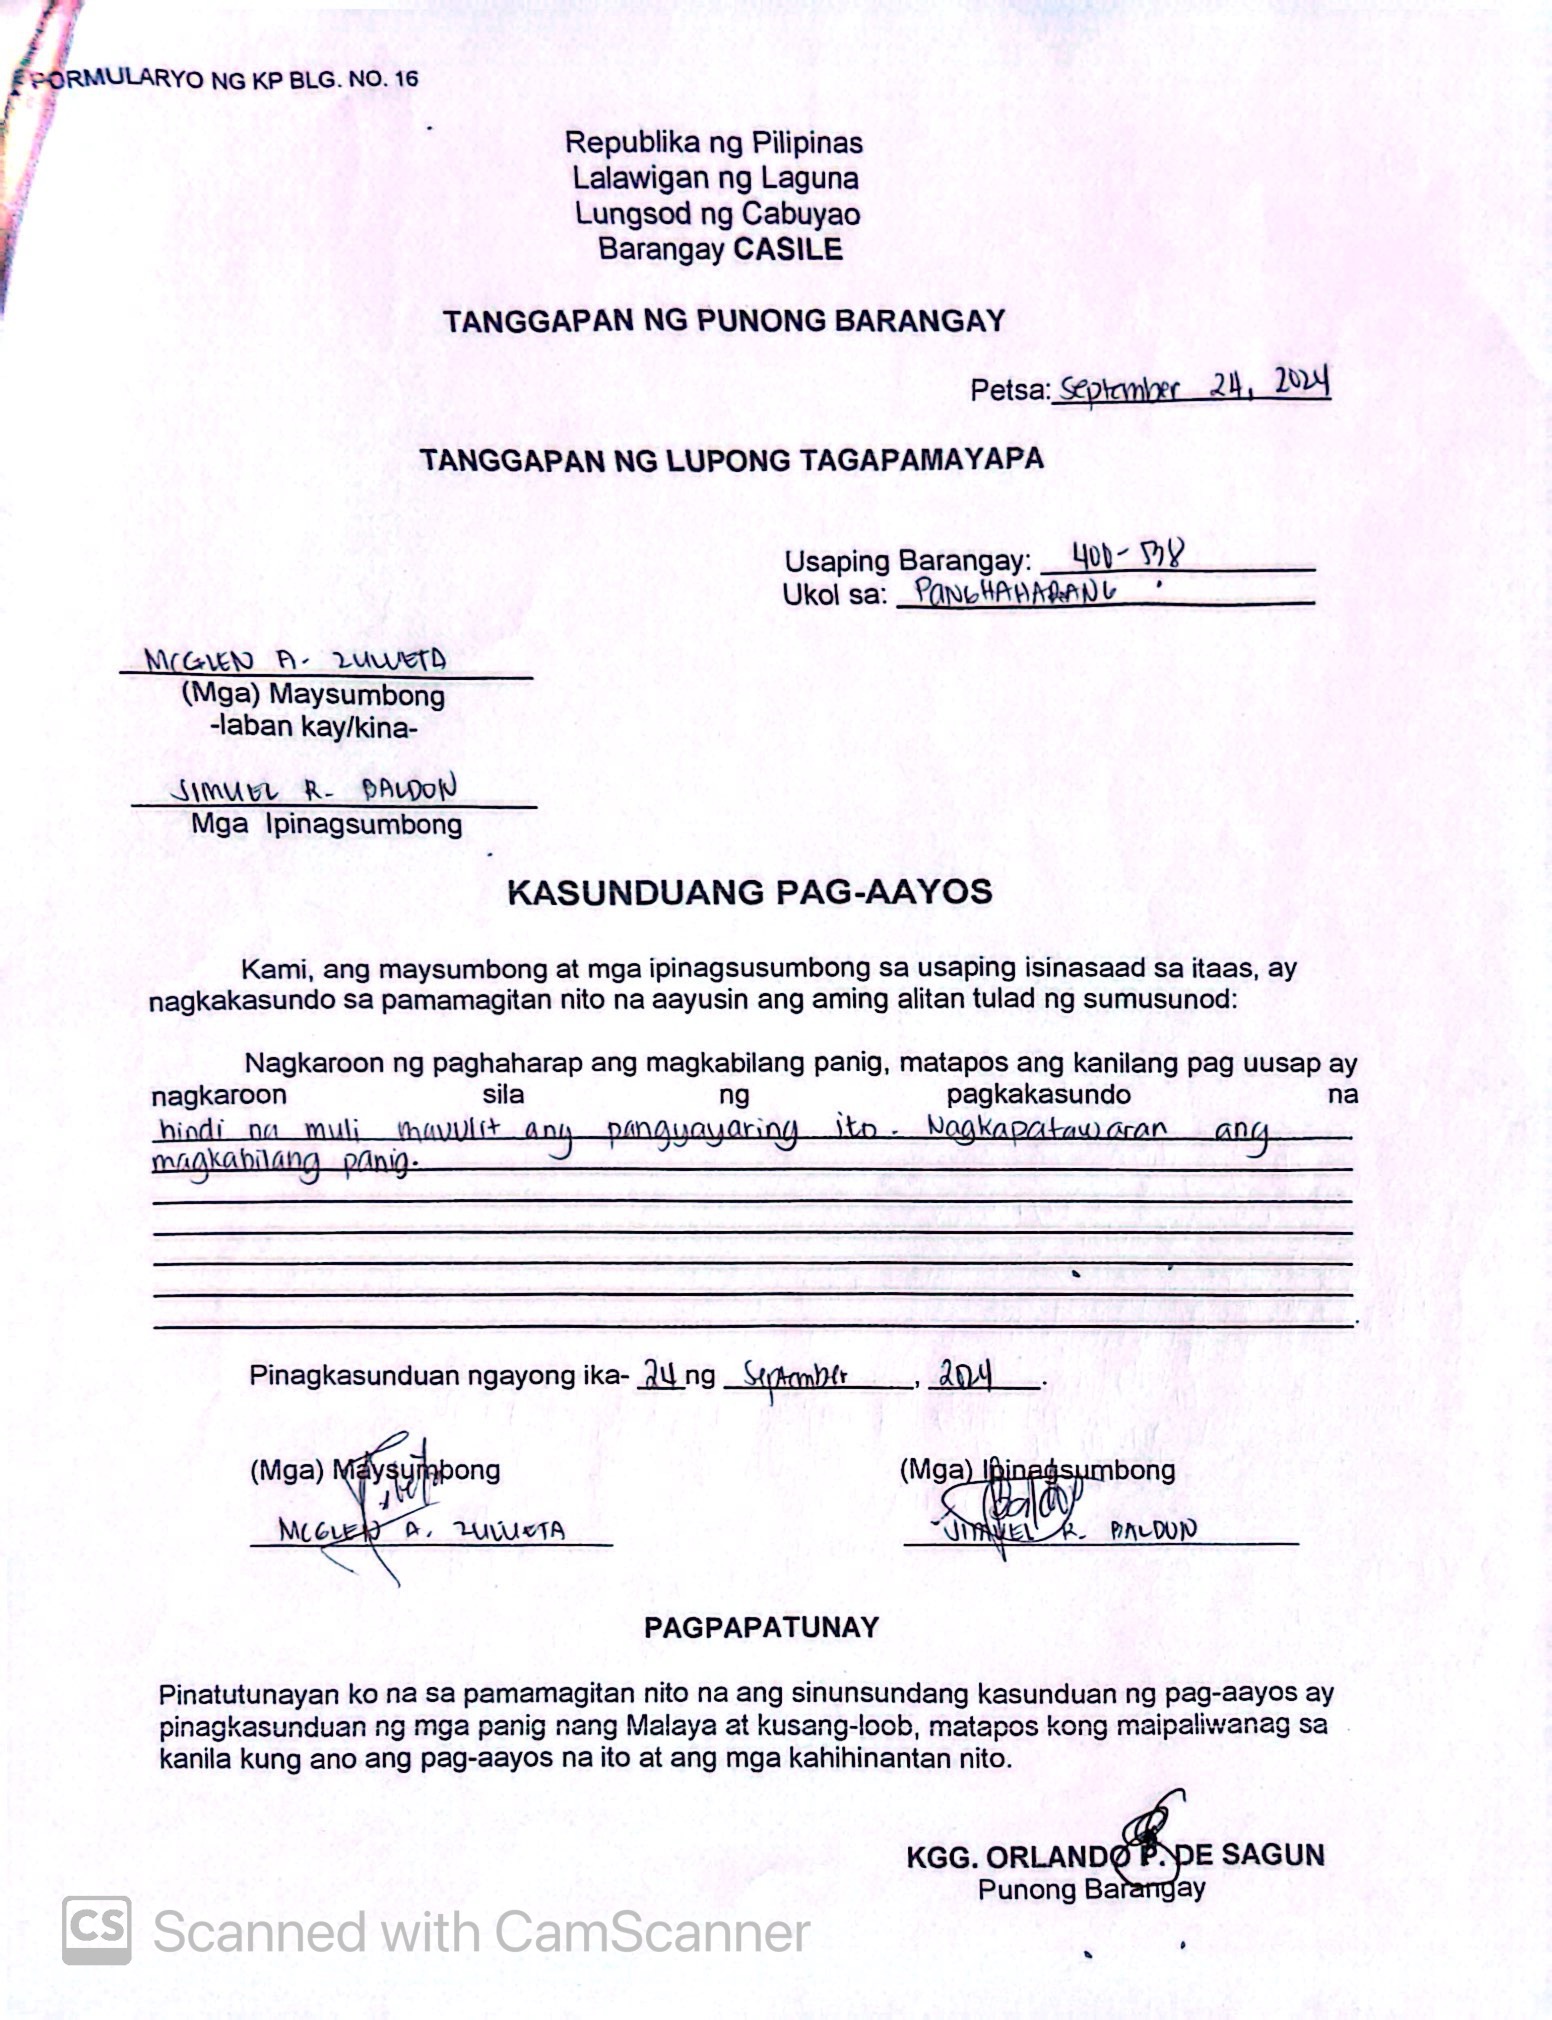 PORMULARYO NG KP BLG. NO. 16
Republika ng Pilipinas
Lalawigan ng Laguna
Lungsod ng Cabuyao
Barangay CASILE
TANGGAPAN NG PUNONG BARANGAY
Petsa: September 24, 2024
TANGGAPAN NG LUPONG TAGAPAMAYAPA
Usaping Barangay: 400-
Ukol sa: PANGHAHARANG
MCGLEN A. ZULUETA
(Mga) Maysumbong
-laban kay/kina-
JIMUEL R. BALDON
Mga Ipinagsumbong
KASUNDUANG PAG-AAYOS
Kami, ang maysumbong at mga ipinagsusumbong sa usaping isinasaad sa itaas, ay
nagkakasundo sa pamamagitan nito na aayusin ang aming alitan tulad ng sumusunod:
Nagkaroon ng paghaharap ang magkabilang panig, matapos ang kanilang pag uusap ay
nagkaroon sila ng pagkakasundo na
hindi na muli mauulit ang pangyayaring ito. Nagkapatawaran ang
magkabilang panig.
Pinagkasunduan ngayong ika- 24 ng September, 2024.
(Mga) Maysumbong (Mga) Ipinagsumbong
MCGLEN A. ZULUETA JIMUEL R. BALDON
PAGPAPATUNAY
Pinatutunayan ko na sa pamamagitan nito na ang sinunsundang kasunduan ng pag-aayos ay
pinagkasunduan ng mga panig nang Malaya at kusang-loob, matapos kong maipaliwanag sa
kanila kung ano ang pag-aayos na ito at ang mga kahihinantan nito.
KGG. ORLANDO P. DE SAGUN
Punong Barangay
CS Scanned with CamScanner